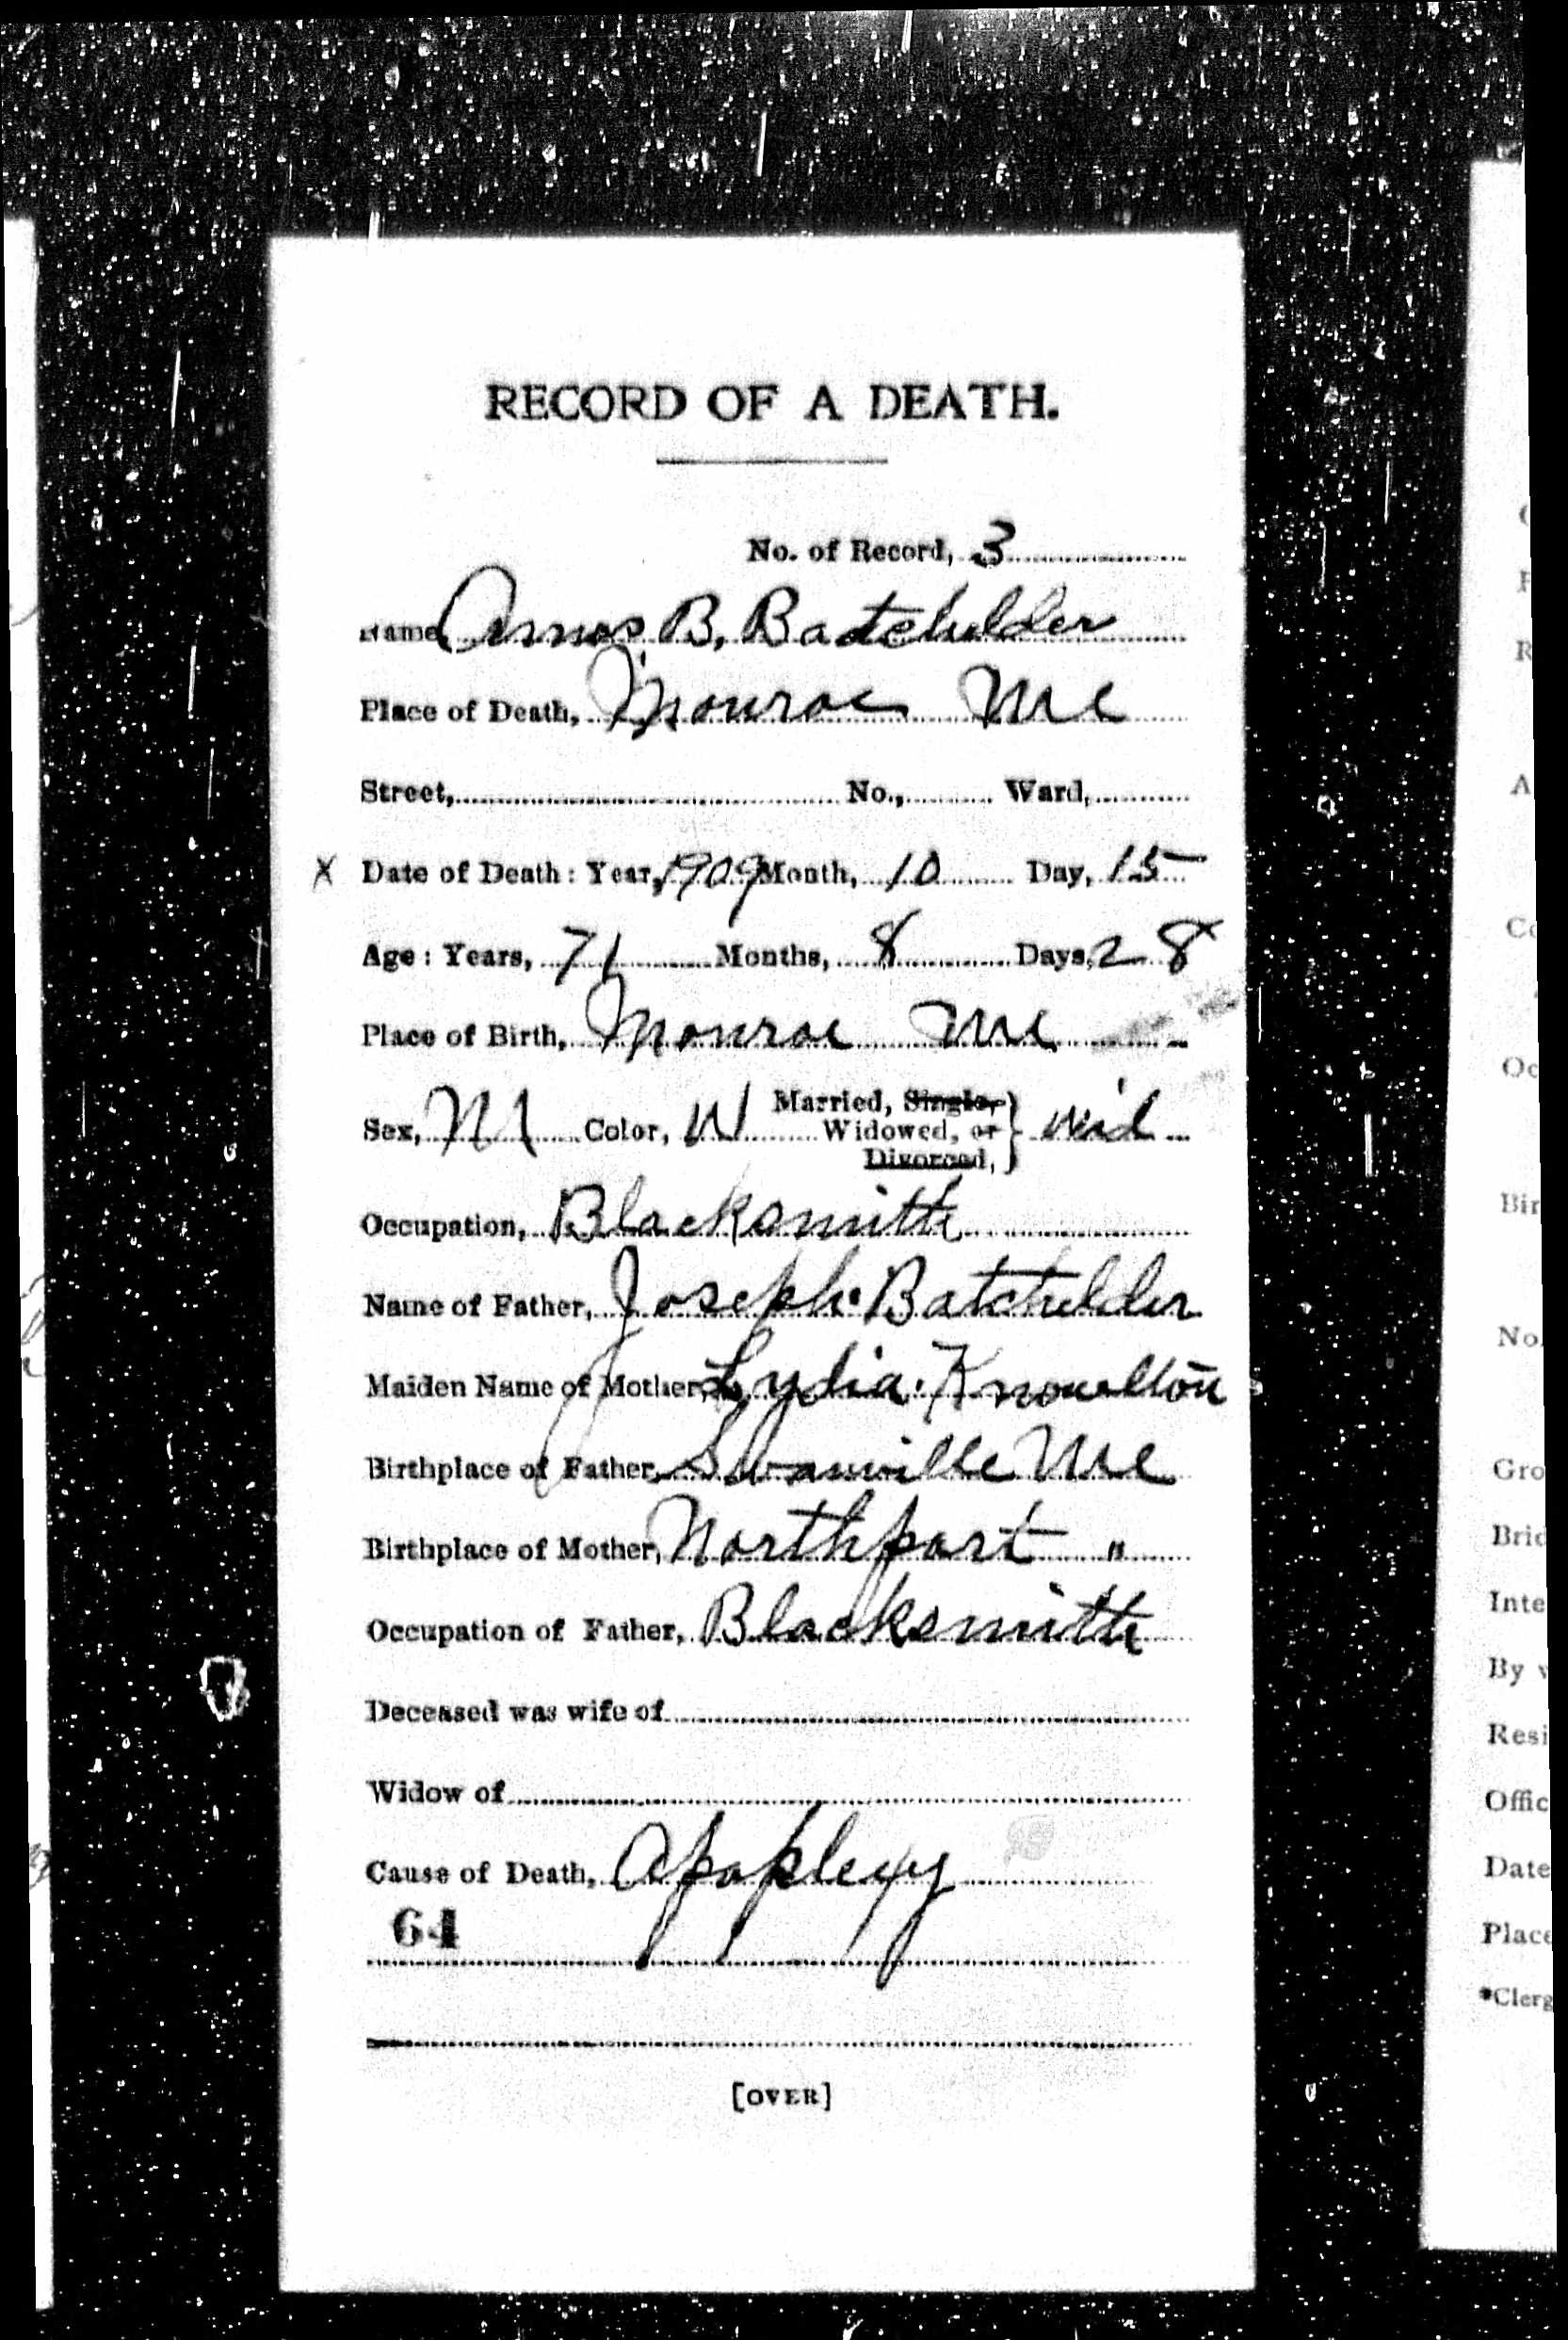 RECORD OF A DEATH.
No. of Record, 3
Name, Amos B. Batchelder
Place of Death, Monroe Me
Street, No., Ward,
X Date of Death: Year, 1909 Month, 10 Day, 15
Age: Years, 71 Months, 8 Days, 28
Place of Birth, Monroe Me
Sex, M Color, W Married, Single, Widowed, or Divorced, } wid
Occupation, Blacksmith
Name of Father, Joseph Batchelder
Maiden Name of Mother, Lydia Knowlton
Birthplace of Father, Swanville Me
Birthplace of Mother, Northport "
Occupation of Father, Blacksmith
Deceased was wife of
Widow of
Cause of Death, Apoplexy
64
[OVER]
R
A
Co
Oc
Bir
No.
Gro
Brid
Inte
By
Resi
Offic
Date
Place
*Clerg